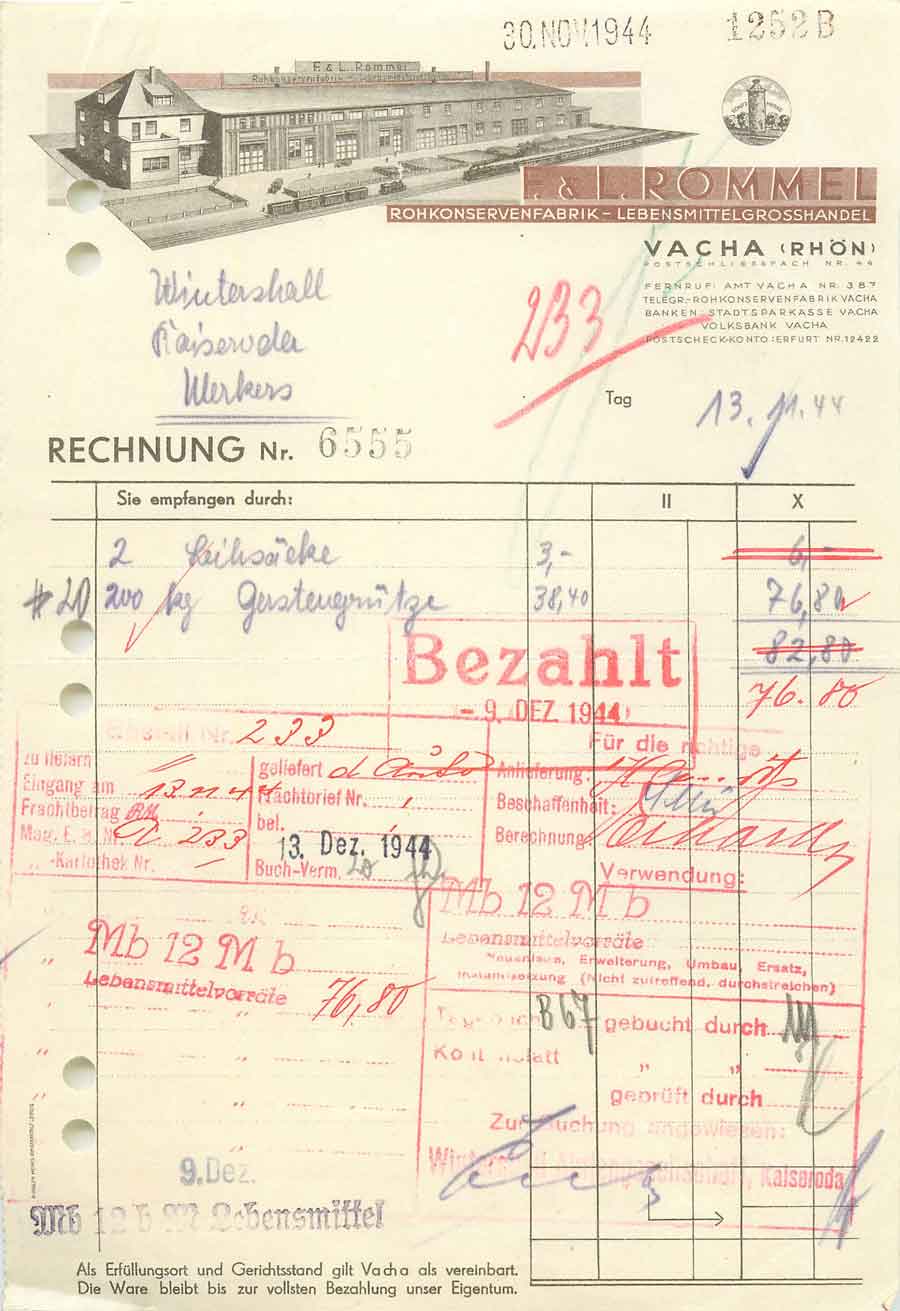 30.NOV.1944 1252B
F. & L. Rommel
F. & L. ROMMEL
ROHKONSERVENFABRIK – LEBENSMITTELGROSSHANDEL
VACHA (RHÖN)
POSTSCHLIESSFACH NR. 44
FERNRUF: AMT VACHA NR. 387
TELEGR.-ROHKONSERVENFABRIK VACHA
BANKEN: STADTSPARKASSE VACHA
VOLKSBANK VACHA
POSTSCHECK-KONTO: ERFURT NR. 12422
Wintershall
Kaiseroda
Merkers
233
Tag 13.11.44
RECHNUNG Nr. 6555
Sie empfangen durch: II X
2 Leihsäcke 3,- 6,-
#20 200 kg Gerstengrütze 38,40 76,80
82,80
76.80
Bezahlt
- 9. DEZ. 1944
Bestell Nr. 233
zu liefern
Eingang am 13.11.44
Frachtbetrag RM
Mag. E. B. Nr. 233
„ -Karthothek Nr.
geliefert d. Auto
Frachtbrief Nr.
bei.
13. Dez. 1944
Buch-Verm. 20
Für die richtige
Anlieferung:
Beschaffenheit:
Berechnung:
Verwendung:
Mb 12 M b
Lebensmittelvorräte
Neuanlage, Erweiterung, Umbau, Ersatz,
Instandsetzung (Nicht zutreffend, durchstreichen)
Mb 12 M b
Lebensmittelvorräte 76,80
Tagebuch B67 gebucht durch
Kontenblatt „ „
geprüft durch
Zur Buchung angewiesen:
Wintershall Aktiengesellschaft, Kaiseroda
9. Dez.
Mb 12 b M Lebensmittel
Als Erfüllungsort und Gerichtsstand gilt Vacha als vereinbart.
Die Ware bleibt bis zur vollsten Bezahlung unser Eigentum.